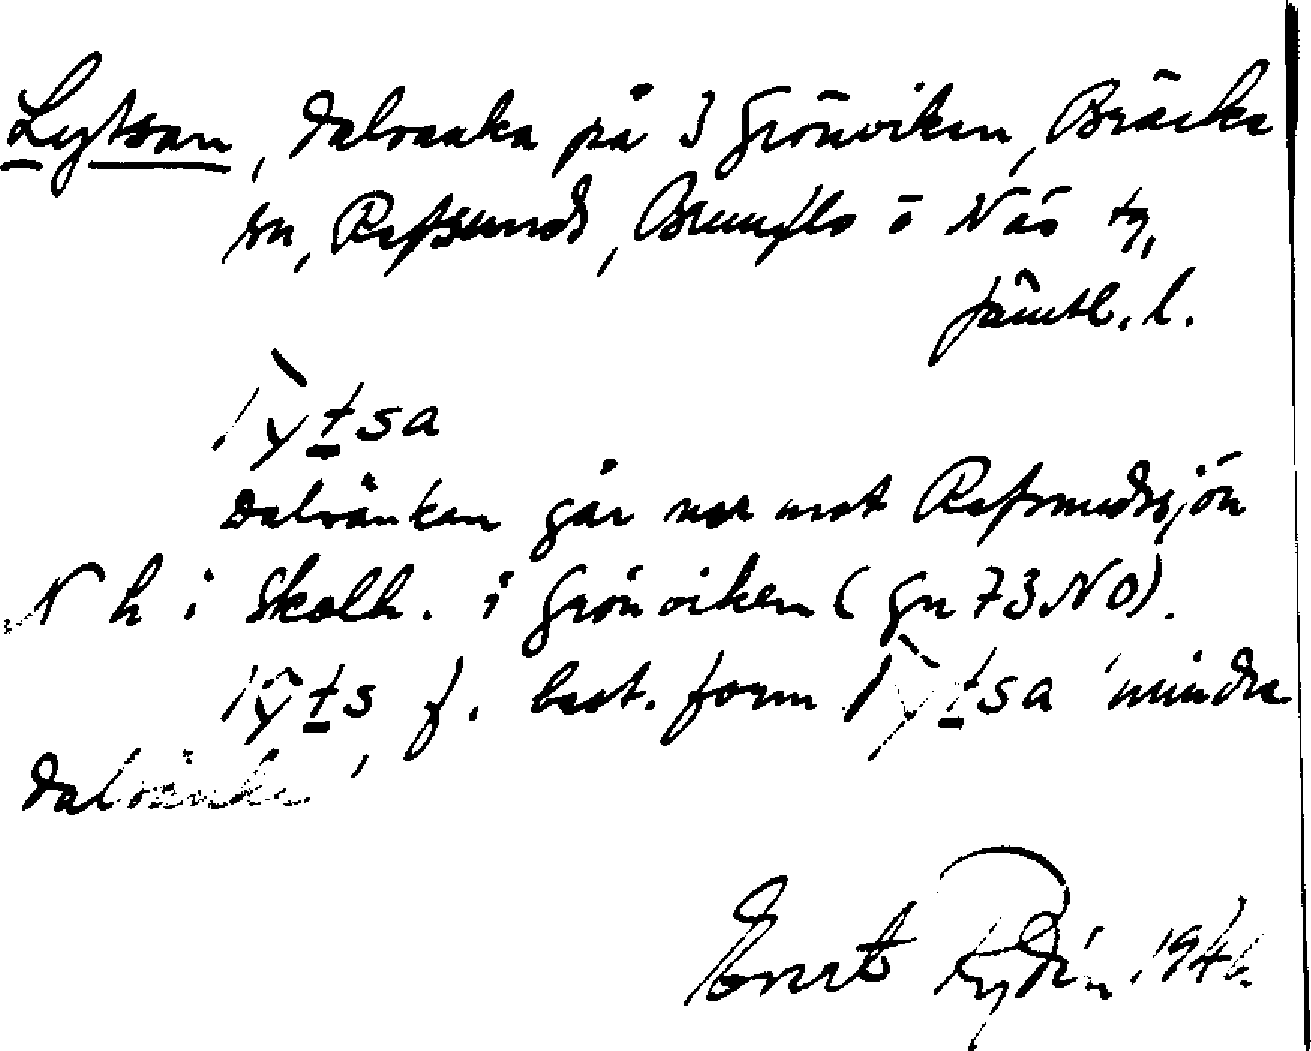 Lytsan, dalsänka på 3 Grönviken, Bräcke
sn, Refsunds, Brunflo o Näs tg,
Jämtl. l.
lỳtsa
Dalsänkan går ner mot Refsundssjön
N h i Skolh. i Grönviken (Gn 73 NO).
lỳts f. best. form lỳtsa 'mindre
dalsänka'
Ernst Rydén 194